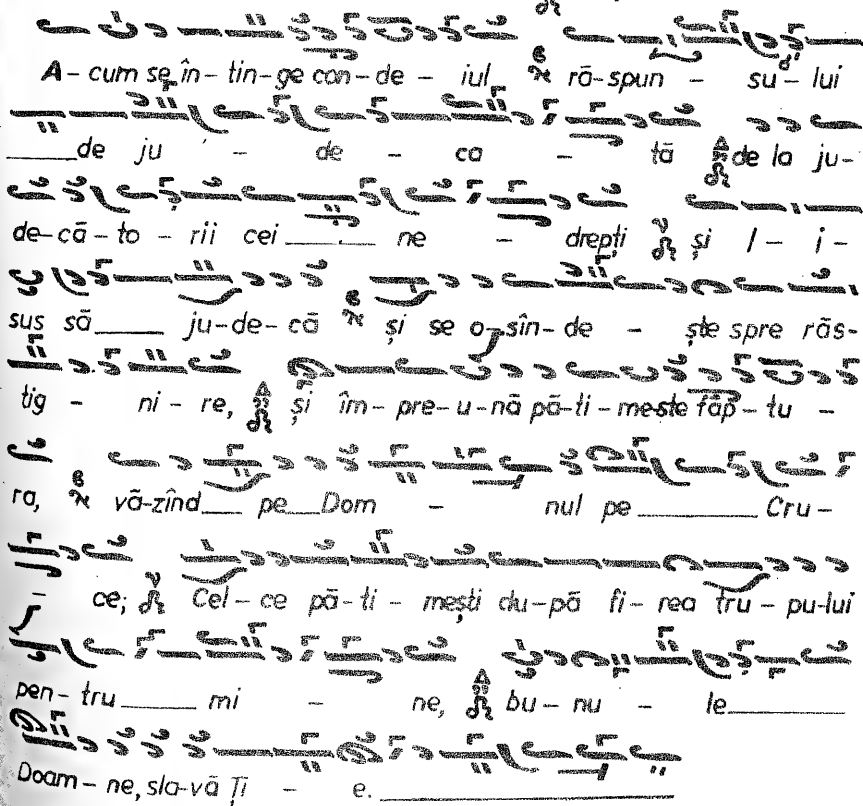 A-cum se în-tin-ge con-de - iul ră-spun - su-lui
____de ju - de - ca - tă de la ju-
de-că-to-rii cei ____ ne - drepți și I-i-
sus să____ ju-de-că și se o-sîn-de - ște spre răs-
tig - ni-re, și îm-pre-u-nă pă-ti-mește făp-tu-
ra, vă-zînd__ pe__Dom - nul pe ____ Cru-
- ce; Cel-ce pă-ti-mești du-pă fi-rea tru-pu-lui
pen-tru____ mi - ne, bu-nu - le____
Doam-ne, sla-vă Ți - e. ____